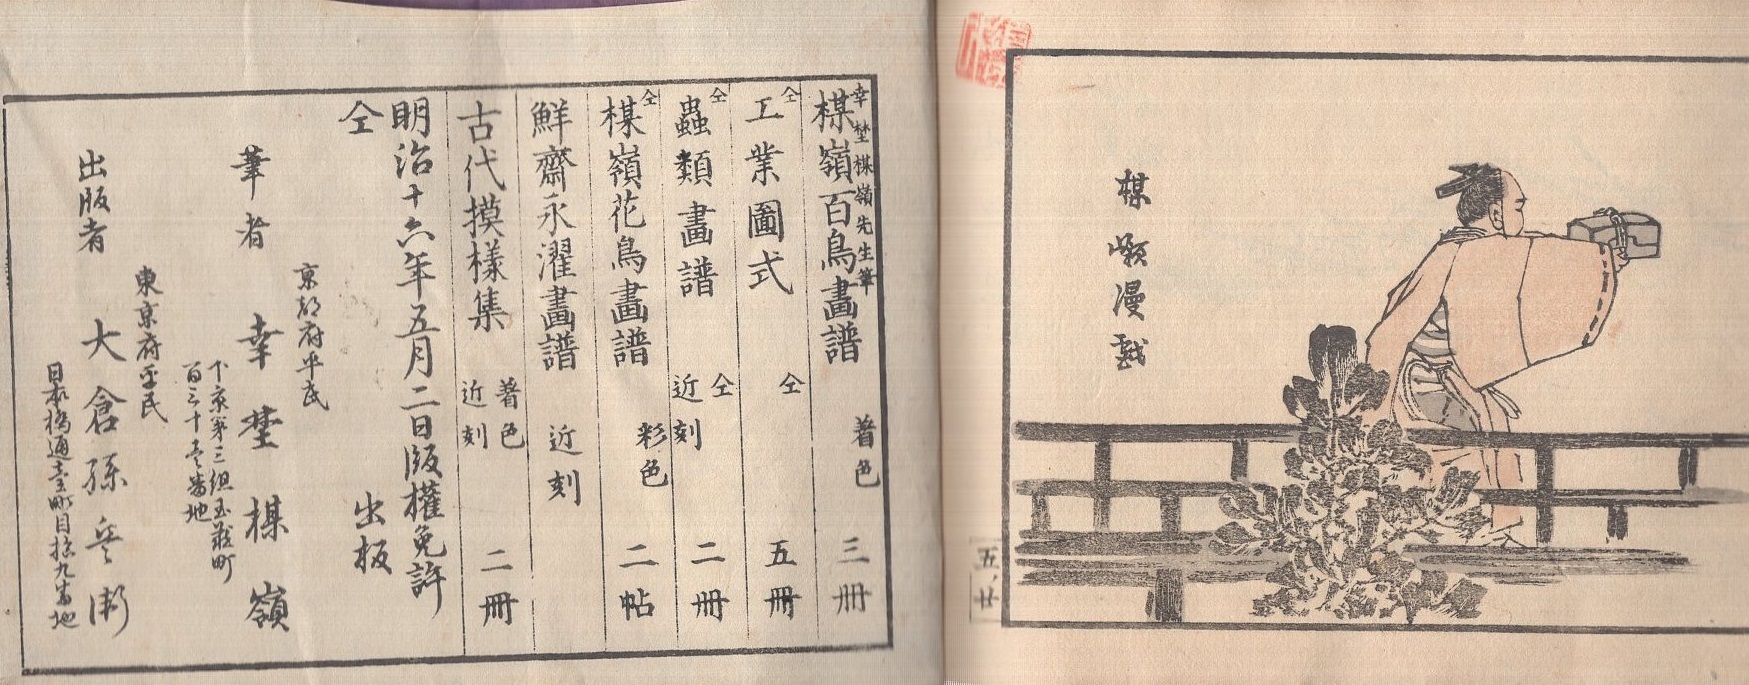 楳嶺漫戯
五ノ廿
幸埜楳嶺先生筆
楳嶺百鳥畫譜 著色 三冊
仝 工業圖式 仝 五冊
仝 蟲類畫譜 仝 近刻 二冊
仝 楳嶺花鳥畫譜 彩色 二帖
鮮齋永濯畫譜 近刻
古代摸樣集 著色 近刻 二冊
明治十六年五月二日版權免許
仝 出板
京都府平民
筆者 幸埜楳嶺
下京第三組玉蔵町
百三十壱番地
東京府平民
出版者 大倉孫兵衛
日本橋通壹町目拾九番地